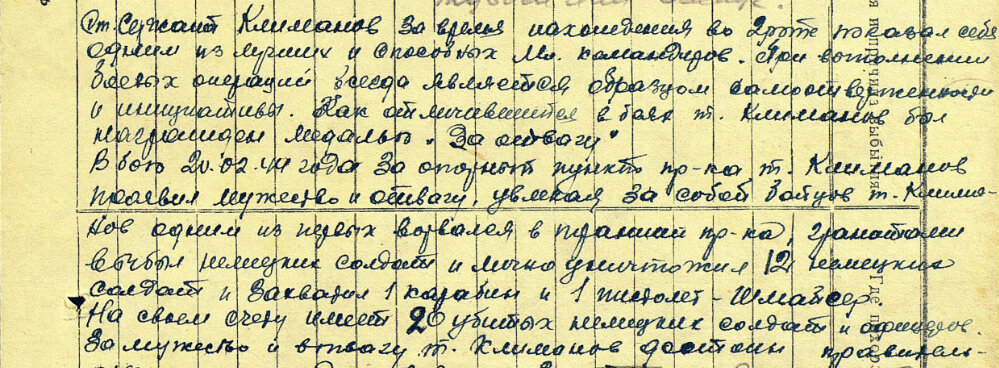 Ст. Сержант Климанов за время нахождения во 2 роте показал себя
одним из лучших и способных мл. командиров. При выполнении
боевых операций всегда является образцом самоотверженности
и инициативы. Как отличившийся в боях т. Климанов был
награжден медалью "За отвагу"
В бою 20.02.44 года за опорный пункт пр-ка, т. Климанов
проявил мужество и отвагу, увлекая за собой бойцов т. Клима-
нов одним из первых ворвался в траншеи пр-ка, гранатами
выбил немецких солдат и лично уничтожил 12 немецких
солдат и захватил 1 карабин и 1 пистолет-Шмайсер
На своем счету имеет 20 убитых немецких солдат и офицеров.
За мужество и отвагу т. Климанов достоин правитель-
и причина выбытия
Где